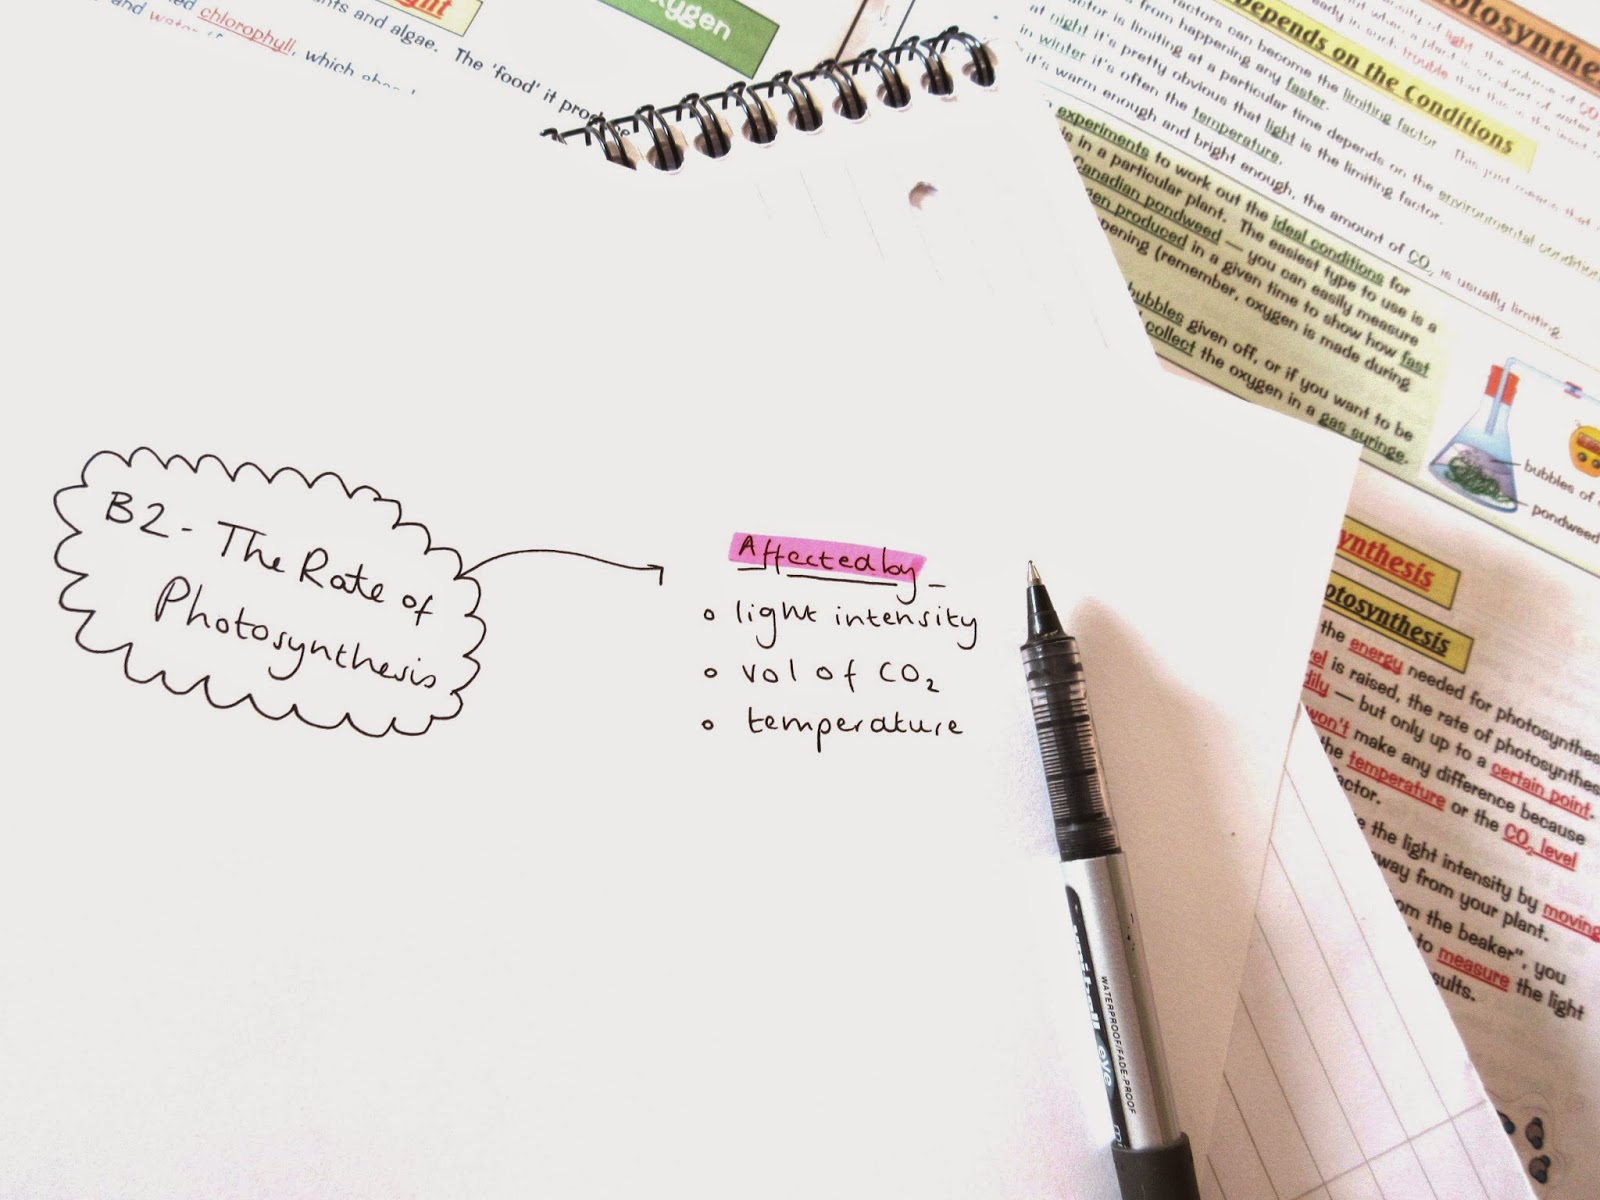 B2 - The Rate of
Photosynthesis
Affected by -
• light intensity
• vol of CO₂
• temperature
ght
oxygen
nts and algae. The 'food' it prod
chlorophyll, which
and water
otosynthesis
Depends on the Conditions
factors can become the limiting factor. This just means that
from happening any faster.
actor is limiting at a particular time depends on the environmental conditions
at night it's pretty obvious that light is the limiting factor.
in winter it's often the temperature.
it's warm enough and bright enough, the amount of CO₂ is usually limiting
experiments to work out the ideal conditions for
is in a particular plant. The easiest type to use is a
Canadian pondweed — you can easily measure
gen produced in a given time to show how fast
pening (remember, oxygen is made during
bubbles given off, or if you want to be
collect the oxygen in a gas syringe.
bubbles of
pondweed
ynthesis
otosynthesis
the energy needed for photosynthes
el is raised, the rate of photosynthes
dily — but only up to a certain point.
won't make any difference because
the temperature or the CO₂ level
actor.
e the light intensity by moving
way from your plant.
om the beaker", you
to measure the light
sults.
uni-ball eye
WATERPROOF/FADE-PROOF
mi